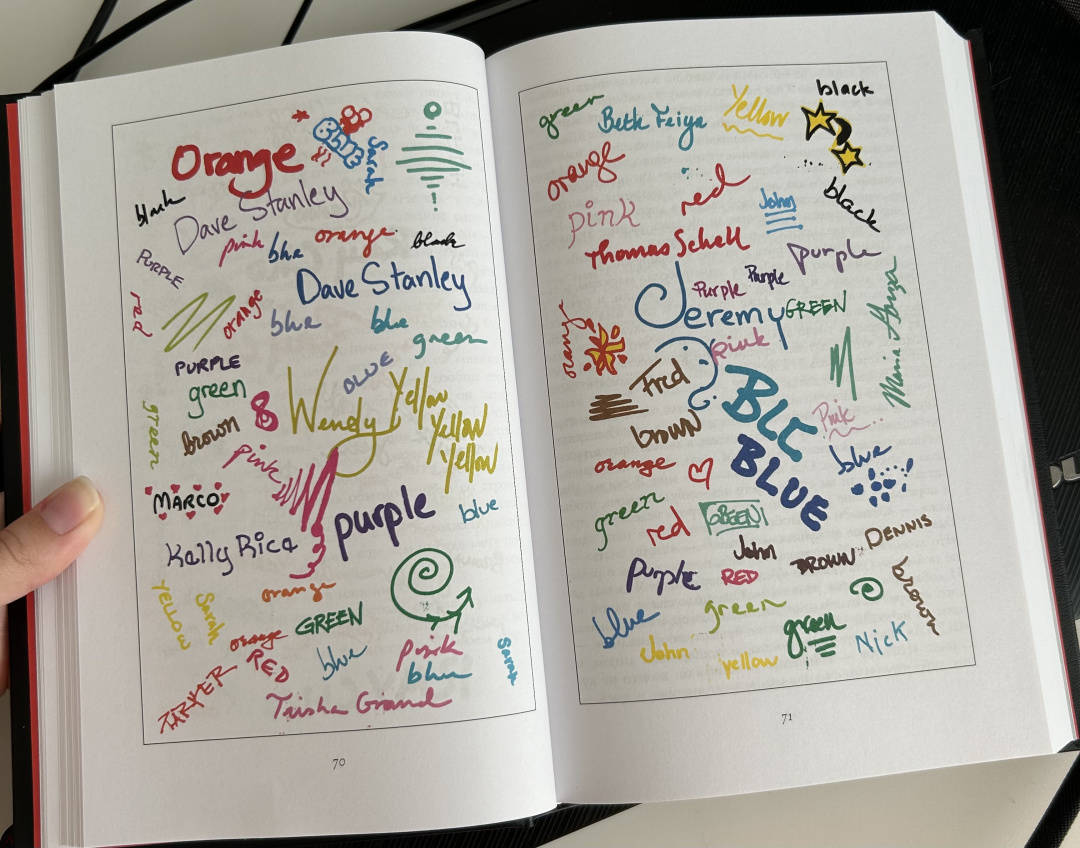 Orange
BLUE
Sarah
black
Dave Stanley
pink
blue
orange
black
PURPLE
Dave Stanley
red
orange
blue
blue
green
PURPLE
green
BLUE
Wendy
Yellow
Yellow
Yellow
green
brown
pink
MARCO
purple
blue
Kelly Rice
YELLOW
Sarah
orange
orange
GREEN
RED
blue
pink
blue
Sarah
ZARYER
Trisha Grand
70
green
Beth Feiya
Yellow
black
orange
pink
red
John
black
Thomas Schell
purple
Purple
Purple
Jeremy
GREEN
Maria
orange
pink
Fred
BLC
brown
Pink
BLUE
blue
orange
green
red
GREEN
John
BROWN
DENNIS
Purple
RED
brown
blue
green
green
John
yellow
Nick
71